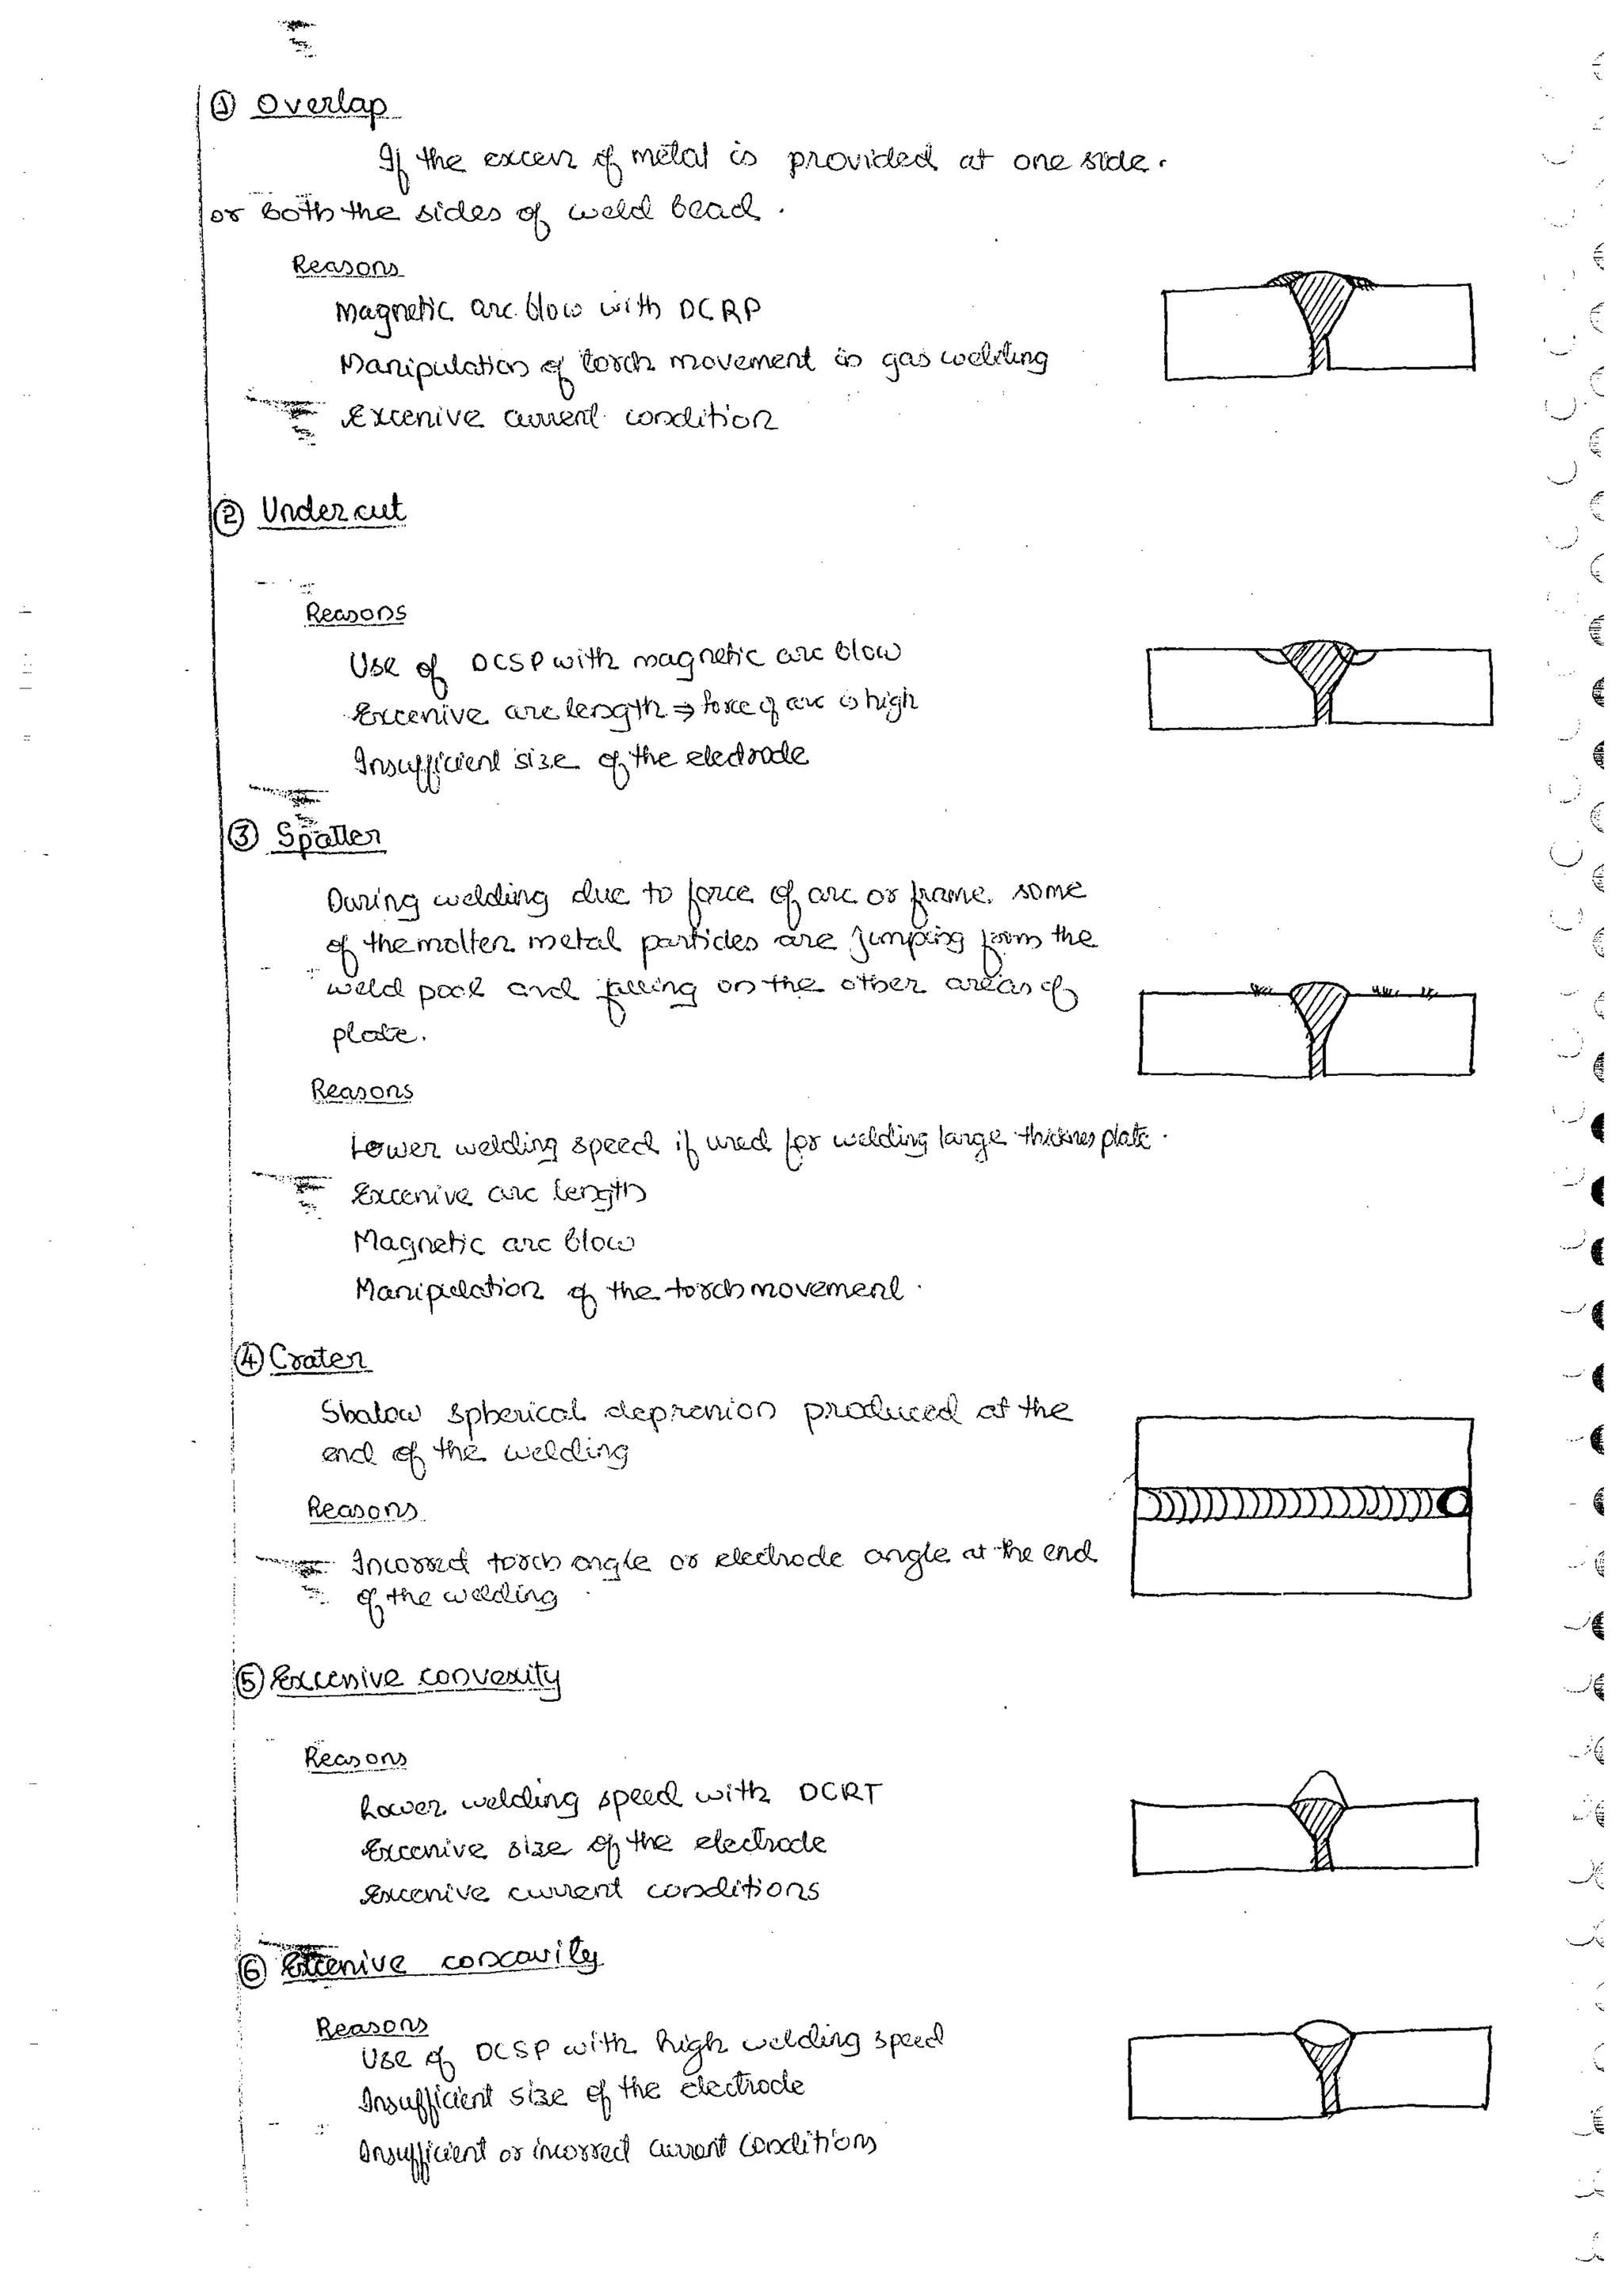 ① Overlap
If the excess of metal is provided at one side.
or both the sides of weld bead.
Reasons
Magnetic arc blow with DCRP
Manipulation of torch movement in gas welding
Excessive current condition
② Undercut
Reasons
Use of DCSP with magnetic arc blow
Excessive arc length ⇒ force of arc is high
Insufficient size of the electrode
③ Spatter
During welding due to force of arc or frame. some
of the molten metal particles are jumping from the
weld pool and falling on the other areas of
plate.
Reasons
Lower welding speed if used for welding large thickness plate.
Excessive arc length
Magnetic arc blow
Manipulation of the torch movement.
④ Crater
Shalow spherical depression produced at the
end of the welding
Reasons
Incorrect torch angle or electrode angle at the end
of the welding
⑤ Excessive convexity
Reasons
Lower welding speed with DCRT
Excessive size of the electrode
Excessive current conditions
⑥ Excessive concavity
Reasons
Use of DCSP with high welding speed
Insufficient size of the electrode
Insufficient or incorrect current conditions